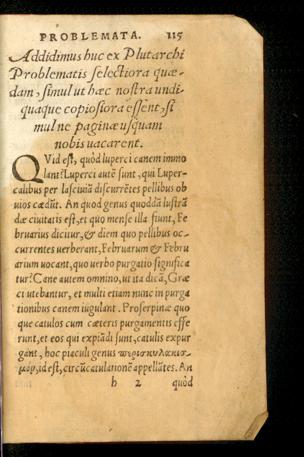 PROBLEMATA. 115
Addidimus huc ex Plutarchi
Problematis selectiora quæ-
dam, simul ut hæc nostra undi-
quaque copiosiora essent, si
mul ne paginæ usquam
nobis uacarent.
QVid est, quòd luperci canem immo
lant? Luperci autē sunt, qui Luper-
calibus per lasciuiā discurrētes pellibus ob
uios cædūt. An quod genus quoddā lustrā
dæ ciuitatis est, et quo mense illa fiunt, Fe
bruarius dicitur, & diem quo pellibus oc-
currentes uerberant, Februarum & Febru
arium uocant, quo uerbo purgatio significa
tur? Cane autem omnino, ut ita dicā, Græ
ci utebantur, et multi etiam nunc in purga
tionibus canem iugulant. Proserpinæ quo
que catulos cum cæteris purgamentis effe
runt, et eos qui expiādi sunt, catulis expur
gant, hoc piaculi genus περισκυλακισ-
μὸν, id est, circūcatulationē appellātes. An
h 2 quòd